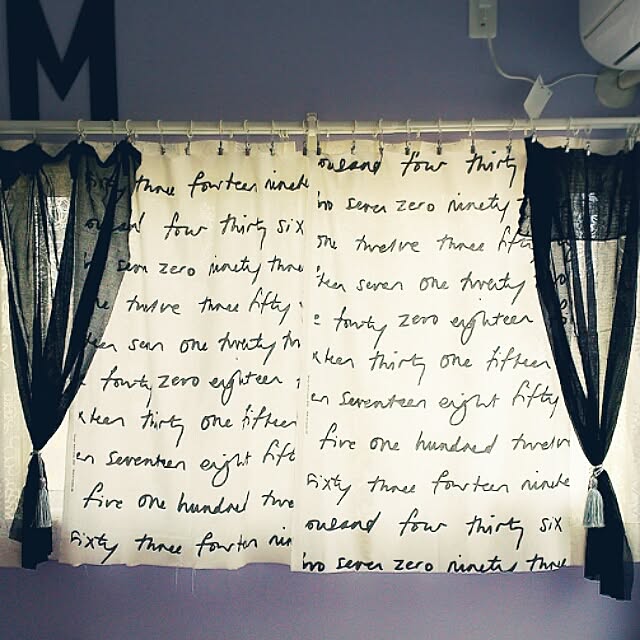 M
sixty three fourteen ninete
ousand four thirty six
wo seven zero ninety three
one twelve three fifty
teen seven one twenty th
forty zero eighteen
xteen thirty one fifteen
en seventeen eight fift
five one hundred twe
sixty three fourteen nin
ousand four thirty
wo seven zero ninety t
one twelve three fifty
teen seven one twenty
e forty zero eighteen
xteen thirty one fifteen
en seventeen eight fifty
five one hundred twelve
sixty three fourteen ninete
ousand four thirty six
wo seven zero ninety three